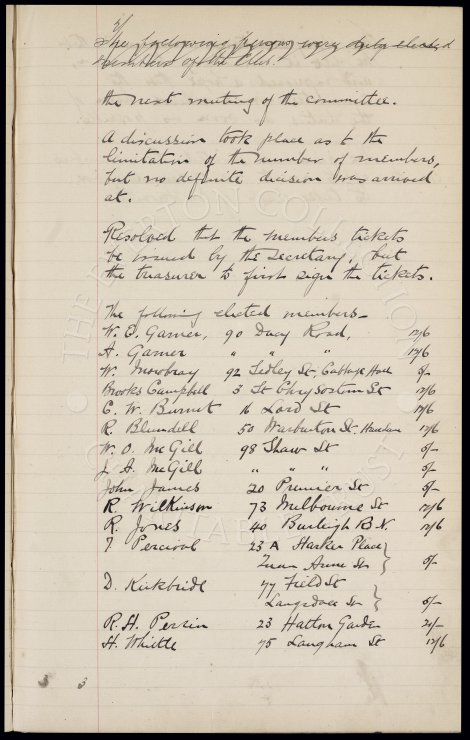 The following persons were duly elected
members of the Club.
the next meeting of the committee.
A discussion took place as to the
limitation of the number of members,
but no definite decision was arrived
at.
Resolved that the members tickets
be issued by the secretary, but
the treasurer to first sign the tickets.
The following elected members—
W. C. Garner, 90 Dacy Road, 12/6
A. Garner " " " 12/6
W. Mowbray 92 Sedley St, Cabbage Hall 5/-
Brooks Campbell 3 St Chrysostom St 12/6
C. W. Burnet 16 Lord St 12/6
R Blundell 50 Warburton St. 12/6
W. O. McGill 98 Shaw St 5/-
J. A. McGill " " " 5/-
John James 20 Premier St 5/-
R. Wilkinson 73 Melbourne St 12/6
R. Jones 40 Burleigh Rd N. 12/6
T Percival 23 A Harker Place
Queen Anne St 5/-
D. Kirkbride 77 Field St
Langsdale St 5/-
R. H. Perrin 23 Hatton Garden 20/-
H. Whittle 75 Langham St 12/6
THE EVERTON COLLECTION